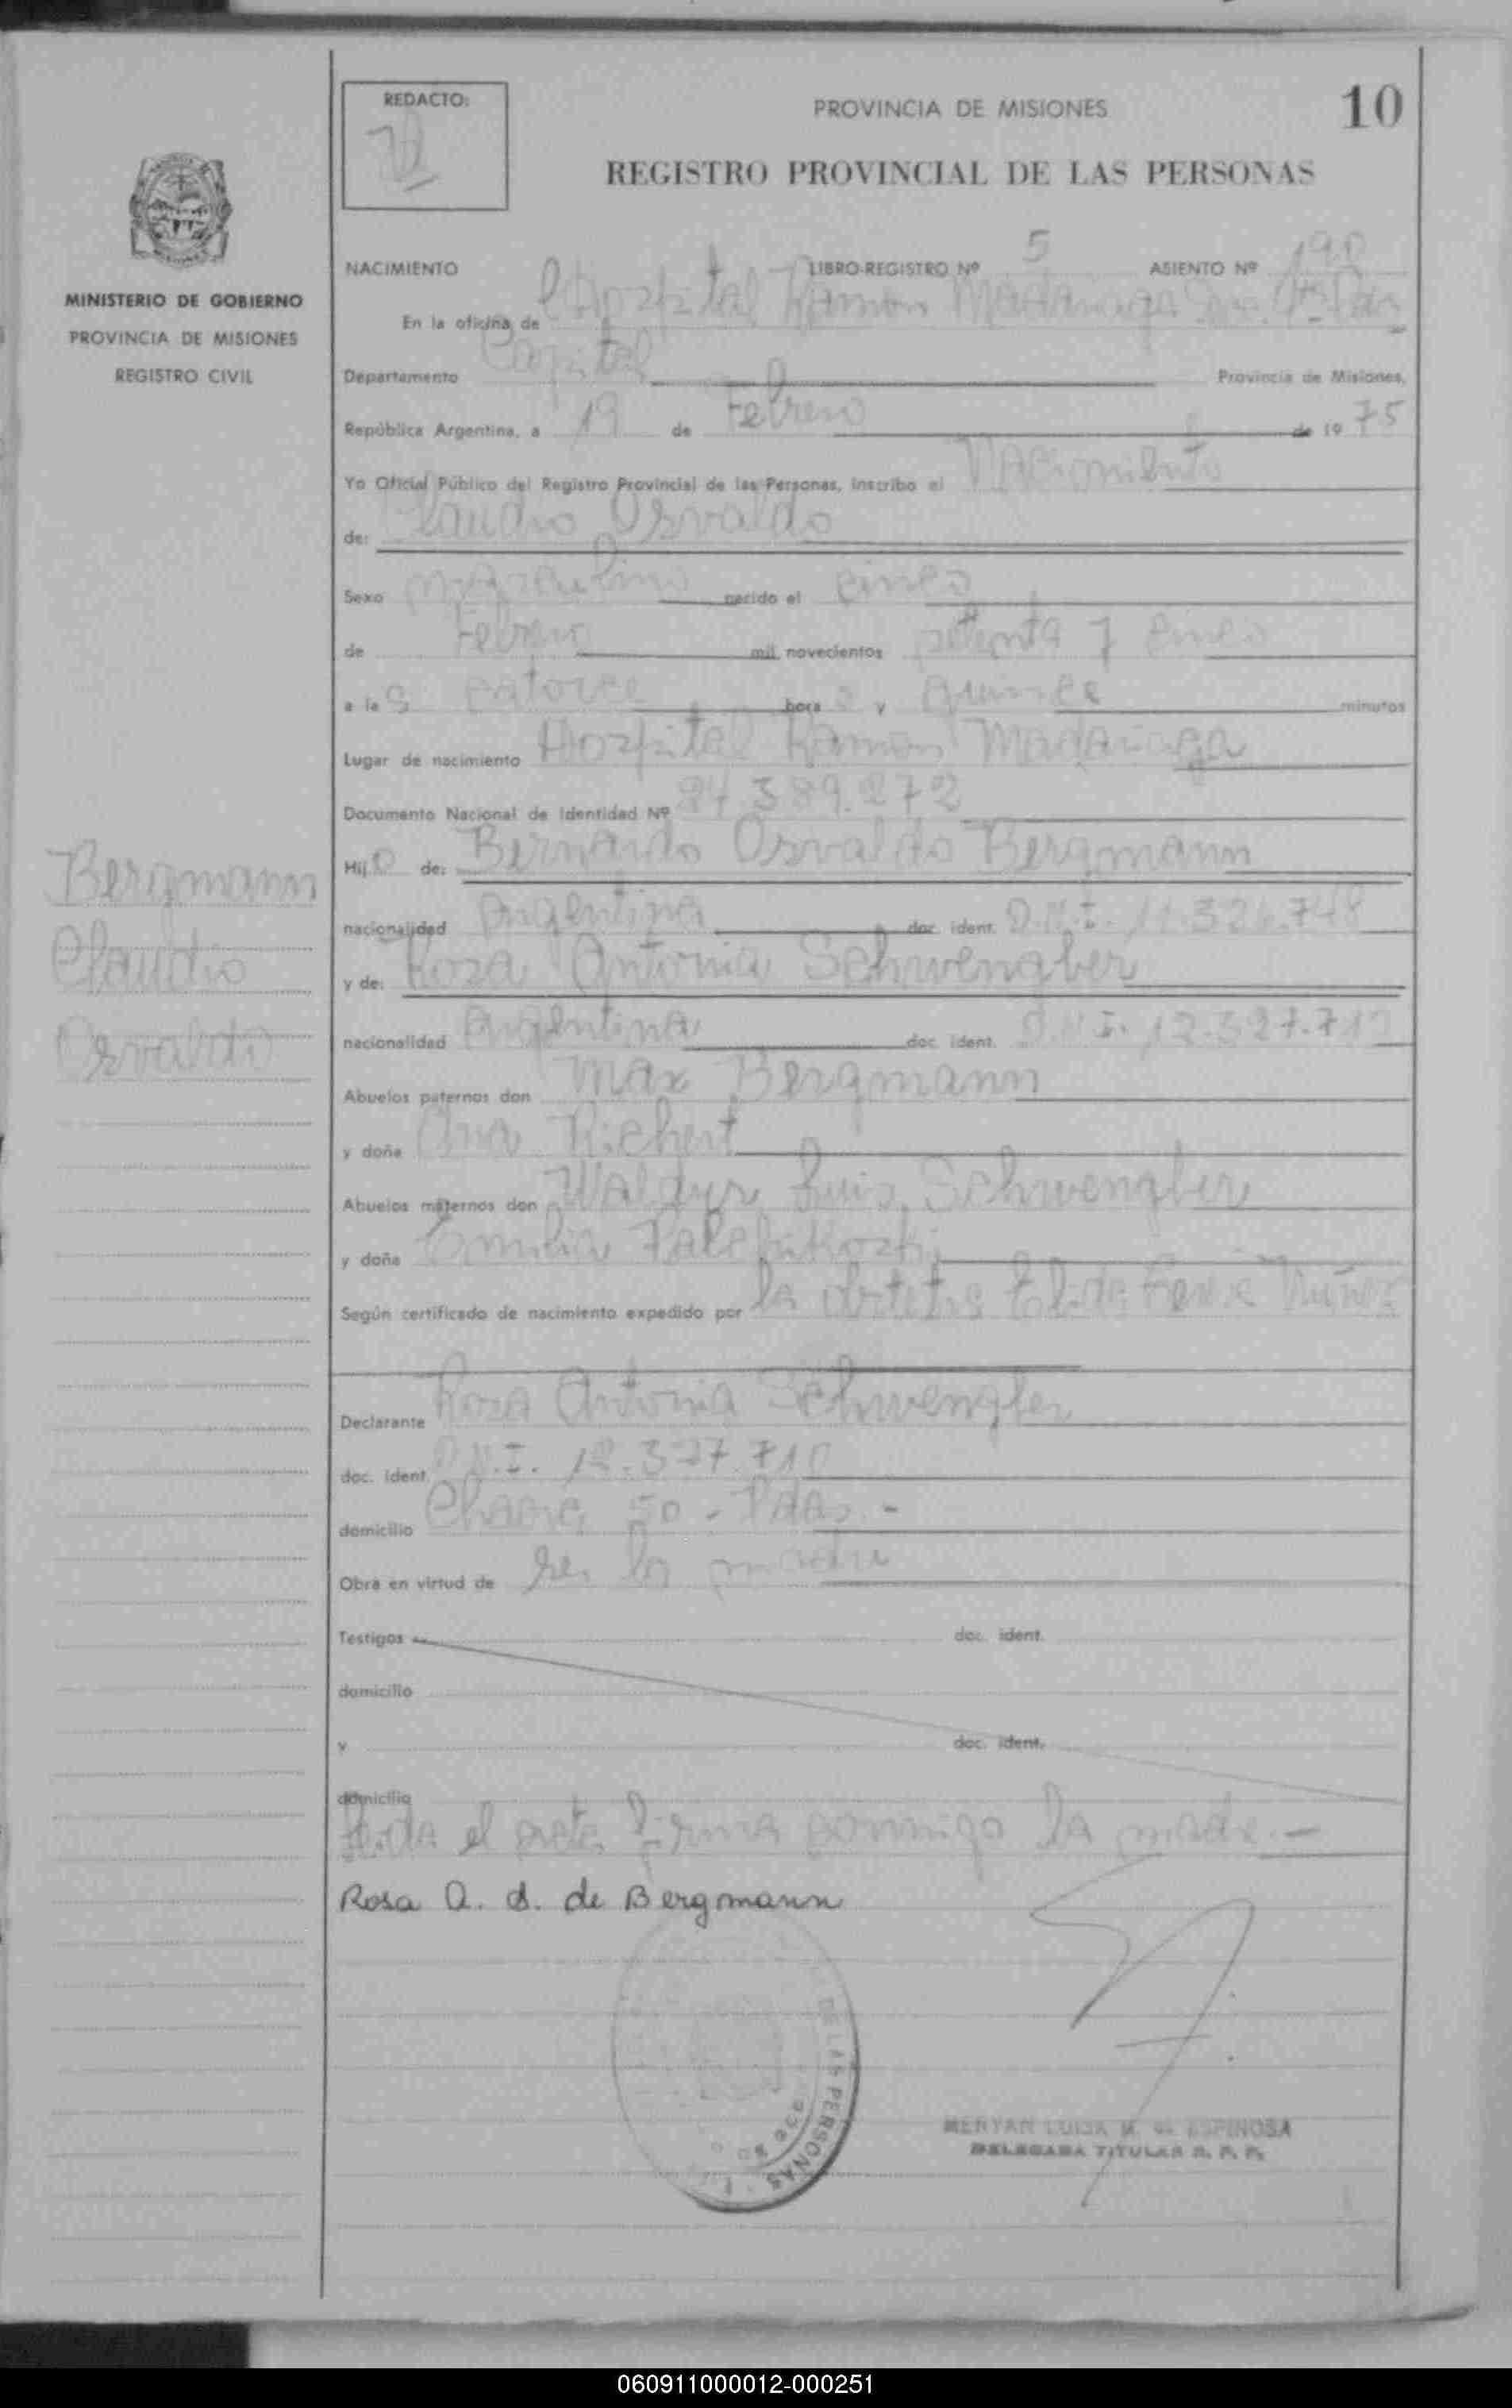 REDACTO:
PROVINCIA DE MISIONES
10
REGISTRO PROVINCIAL DE LAS PERSONAS
MINISTERIO DE GOBIERNO
PROVINCIA DE MISIONES
REGISTRO CIVIL
NACIMIENTO LIBRO-REGISTRO Nº 5 ASIENTO Nº
En la oficina de Hospital Ramón Madariaga
Departamento Capital Provincia de Misiones,
República Argentina, a 19 de Febrero de 1975
Yo Oficial Público del Registro Provincial de las Personas, inscribo el Nacimiento
de: Claudio Osvaldo
Sexo masculino nacido el cinco
de Febrero mil novecientos setenta y cinco
a las catorce horas y quince minutos
Lugar de nacimiento Hospital Ramón Madariaga
Documento Nacional de Identidad Nº 24.389.272
Hijo de: Bernardo Osvaldo Bergmann
nacionalidad Argentina doc. ident. D.N.I. 11.326.748
y de: Rosa Antonia Schwengber
nacionalidad Argentina doc. ident. D.N.I. 12.327.710
Abuelos paternos don Max Bergmann
y doña Ana Richert
Abuelos maternos don Waldyr Luis Schwengber
y doña Emilia
Según certificado de nacimiento expedido por la Núñez
Declarante Rosa Antonia Schwengber
doc. ident. D.N.I. 12.327.710
domicilio Chacra 50 - Pdas. -
Obra en virtud de ser la madre
Testigos doc. ident.
domicilio
y doc. ident.
domicilio
Leída el acta firma conmigo la madre.-
Rosa A. S. de Bergmann
Bergmann
Claudio
Osvaldo
DE LAS PERSONAS
ESPINOSA
DELEGADA TITULAR R. P. P.
060911000012-000251